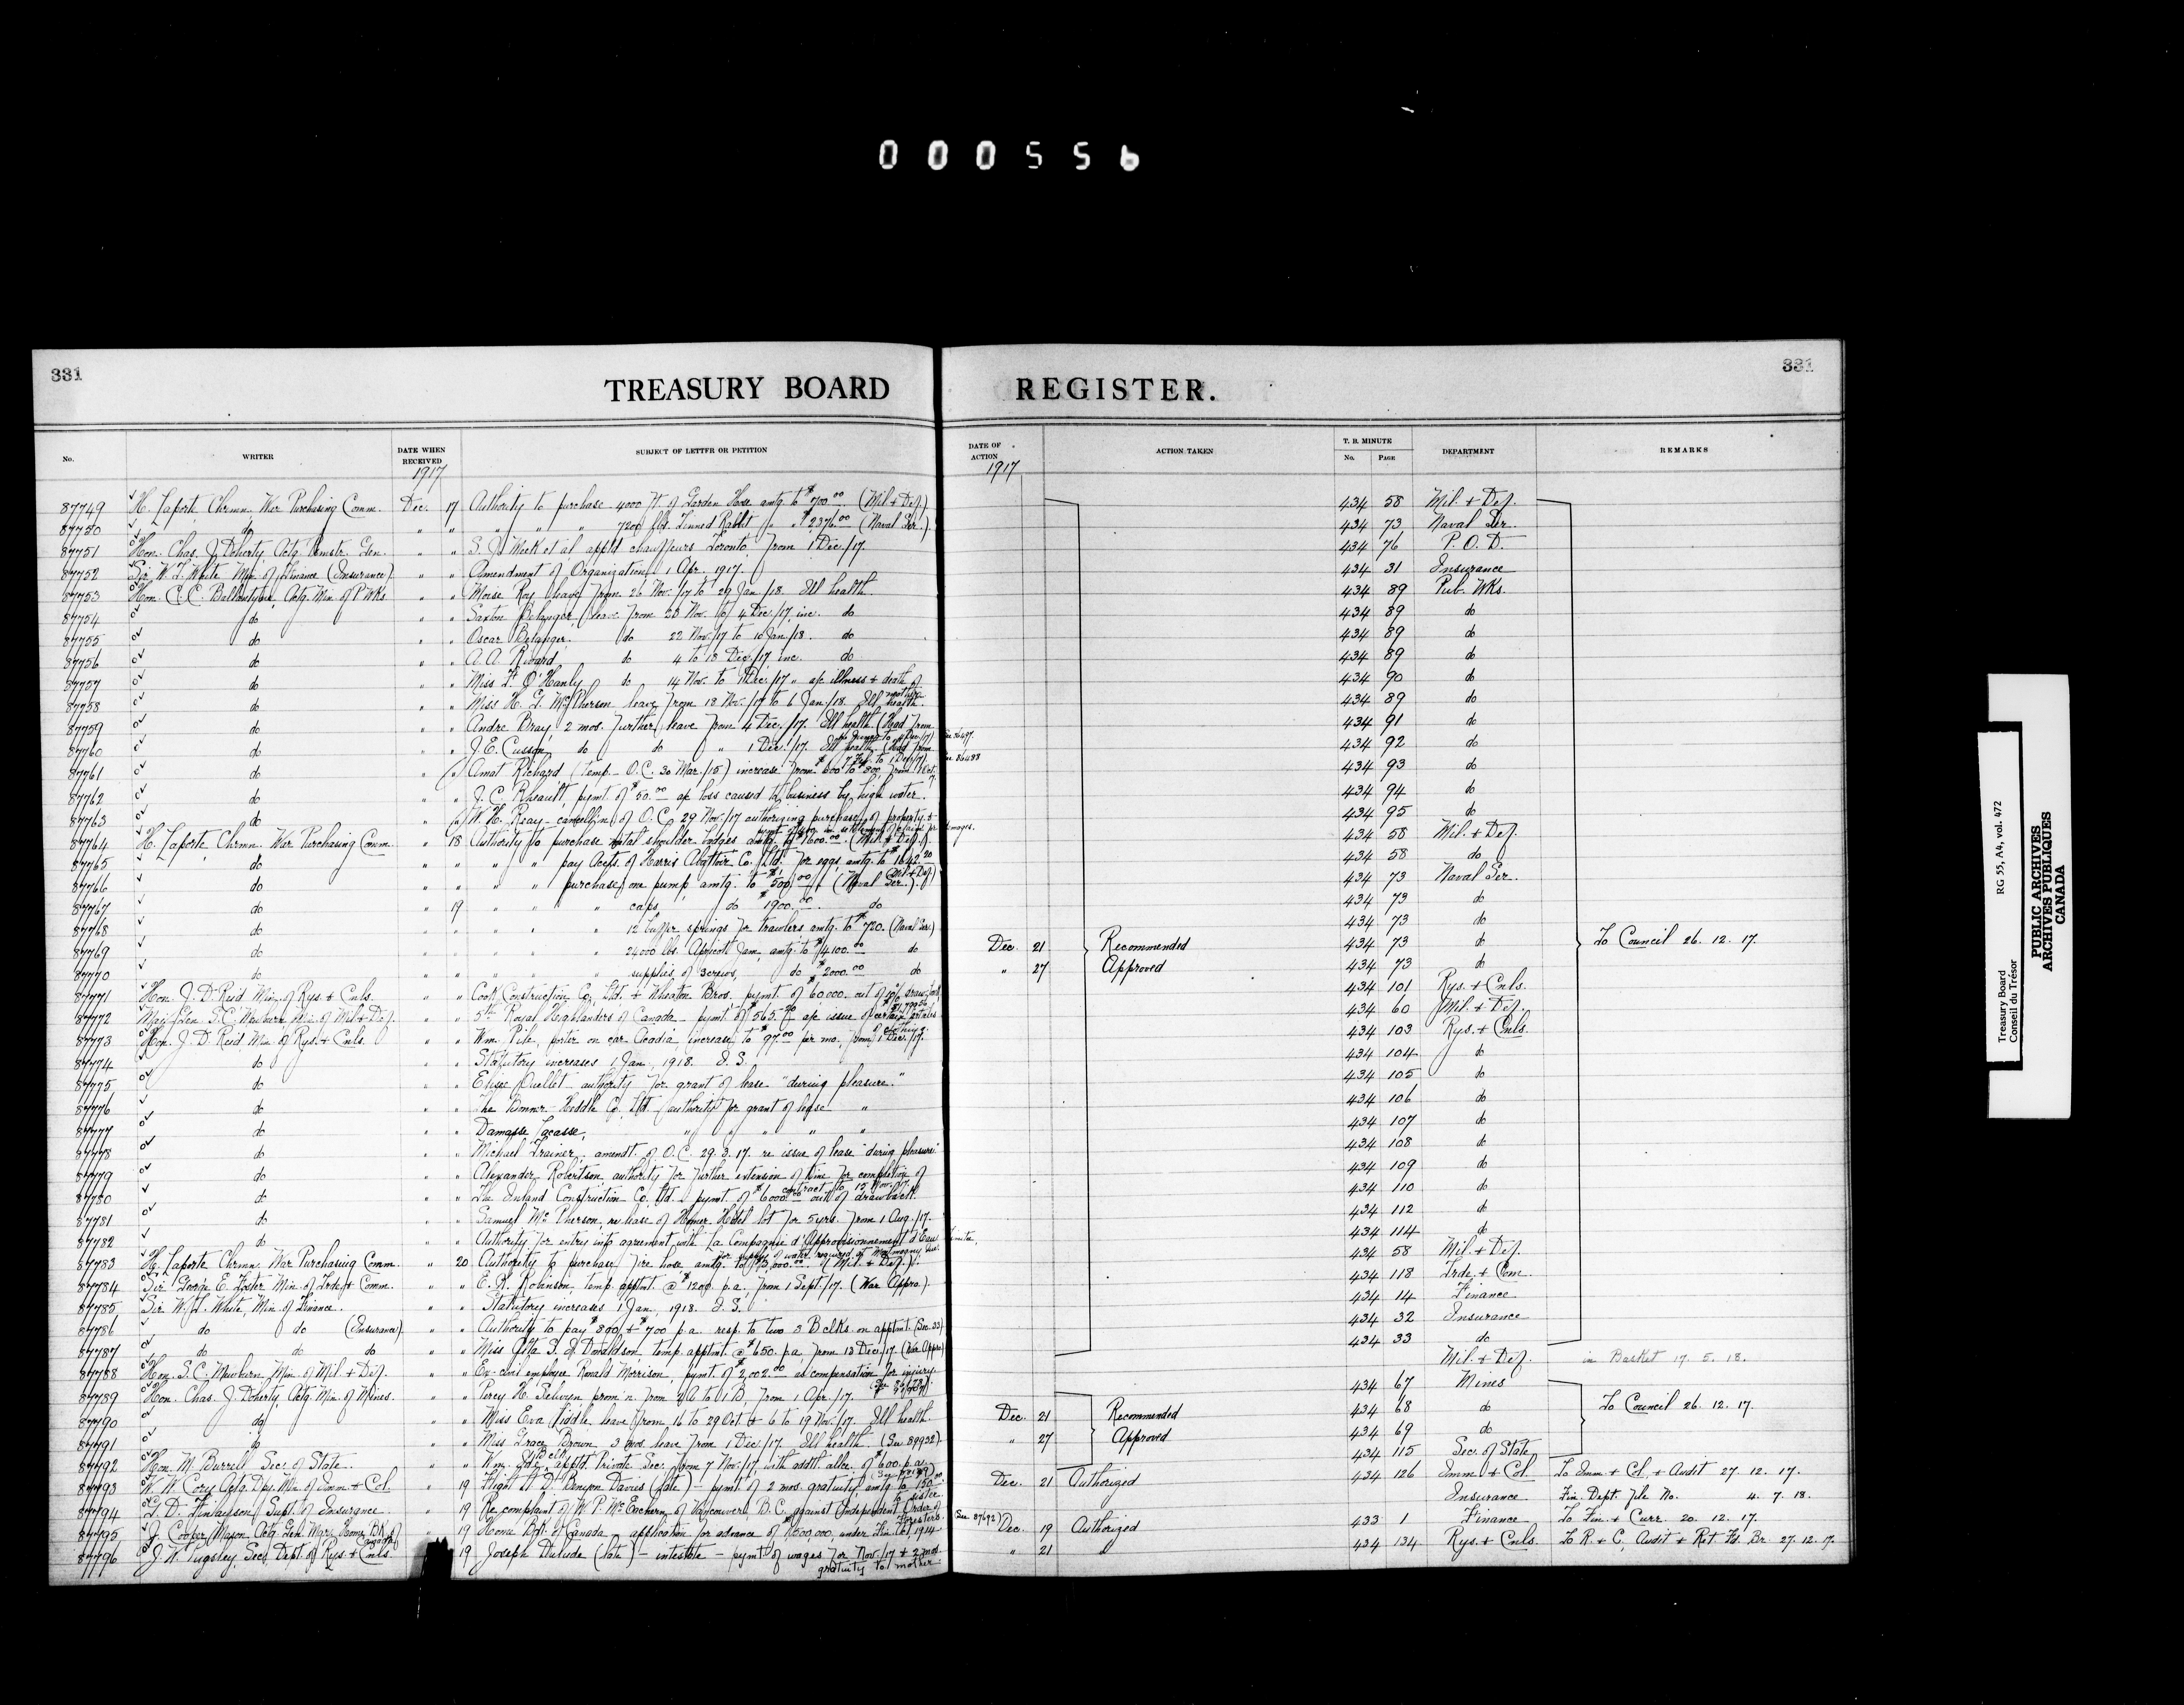 000556
331
331
TREASURY BOARD REGISTER.
No. WRITER DATE WHEN RECEIVED SUBJECT OF LETTER OR PETITION DATE OF ACTION ACTION TAKEN T. B. MINUTE No. PAGE DEPARTMENT REMARKS
1917 1917
87749 H. Laporte, Chrmn. War Purchasing Comm. Dec. 17 Authority to purchase 4000 ft. of Garden Hose amtg. to $700.00 (Mil. & Def.) 434 58 Mil. & Def.
87750 do " " " " " 7200 lbs. Tinned Rabbit " " $2376.00 (Naval Ser.) 434 73 Naval Ser.
87751 Hon. Chas. J. Doherty, Actg. Pmstr. Gen. " " S. J. Meek et al apptd chauffeurs Toronto, from 1 Dec./17. 434 76 P. O. D.
87752 Sir W. T. White Min. of Finance (Insurance) " " Amendment of Organization, 1 Apr. 1917. 434 31 Insurance
87753 Hon. C. C. Ballantyne, Actg. Min. of P. Wks. " " Moise Roy leave from 26 Nov./17 to 29 Jan./18. Ill health. 434 89 Pub. Wks.
87754 do " " Saxton Belanger, leave from 20 Nov. to 4 Dec./17, inc. do 434 89 do
87755 do " " Oscar Belanger. do 22 Nov./17 to 10 Jan./18. do 434 89 do
87756 do " " A. A. Rivard do 4 to 18 Dec./17, inc. do 434 89 do
87757 do " " Miss F. O'Hanly do 14 Nov. to Dec./17 " a/c illness & death of mother. 434 90 do
87758 do " " Miss H. G. McPherson leave from 18 Nov./17 to 6 Jan./18. Ill health. 434 89 do
87759 do " " Andre Bray, 2 mos. further leave from 4 Dec./17. Ill health (Had from 434 91 do
87760 do " " J. E. Cusson, do do " 1 Dec./17. Ill health (Had from 7 Feb. to 1 Dec./17) 434 92 do
87761 do " " Amat Richard (temp. - O.C. 30 Mar./15) increase from $600 to $800, from 1 Oct. 434 93 do
87762 do " " J. C. Rheault, pymt. of $50.00 a/c loss caused to business by high water. 434 94 do
87763 do " " W. H. Reay - cancell'n. of O.C. 29 Nov./17 authorizing purchase of property & 434 95 do
87764 H. Laporte, Chrmn. War Purchasing Comm. " 18 Authority to purchase metal shoulder badges amtg. to $1600.00 (Mil. & Def.) 434 58 Mil. & Def.
87765 do " " " " pay Accts. of Harris Abattoir Co. Ltd. for eggs, amtg. to $1642.20 (Mil. & Def.) 434 58 do
87766 do " " " " purchase, one pump amtg. to $500.00 (Naval Ser.) 434 73 Naval Ser.
87767 do " 19 " " " caps, do $1900.00 do 434 73 do
87768 do " " " " " 12 buffer springs for trawlers amtg. to $720. (Naval Ser.) 434 73 do
87769 do " " " " " 24000 lbs. Apricot Jam, amtg. to $4100.00 do Dec. 21 Recommended 434 73 do To Council 26. 12. 17.
87770 do " " " " " supplies of screws, do $2000.00 do " 27 Approved 434 73 do
87771 Hon. J. D. Reid Min. of Rys. & Cnls. " " Cook Construction Co. Ltd. & Wheaton Bros. pymt. of $60000. out of 10% drawback 434 101 Rys. & Cnls.
87772 Maj. Gen. S. C. Mewburn Min. of Mil. & Def. " " 5th Royal Highlanders of Canada - pymt. of $565.20 a/c issue of certain articles of clothing. 434 60 Mil. & Def.
87773 Hon. J. D. Reid, Min. of Rys. & Cnls. " " Wm. Pile, porter on car Acadia, increase to $97.00 per mo., from 1 Dec./17. 434 103 Rys. & Cnls.
87774 do " " Statutory increases 1 Jan., 1918. I. S. 434 104 do
87775 do " " Elisee Ouellet - authority for grant of lease "during pleasure." 434 105 do
87776 do " " The Bonner-Heddle Co. Ltd. authority for grant of lease " 434 106 do
87777 do " " Damasse Lacasse, " " " " " 434 107 do
87778 do " " Michael Trainer, amendt. of O.C. 29. 3. 17. re issue of lease "during pleasure" 434 108 do
87779 do " " Alexander Robertson, authority for further extension of time for completion of contract to 15 Nov./17. 434 109 do
87780 do " " The Inland Construction Co. Ltd. pymt. of $6000.00 out of drawback. 434 110 do
87781 do " " Samuel McPherson, re lease of Homer Hotel lot for 5 yrs. from 1 Aug./17. 434 112 do
87782 do " " Authority for entry into agreement with La Compagnie d'Approvisionnement d'Eau for supply of water required at Montmagny Que. 434 114 do
87783 H. Laporte, Chrmn. War Purchasing Comm. " 20 Authority to purchase fire hose, amtg. to $3,000.00 (Mil. & Def.) 434 58 Mil. & Def.
87784 Sir George E. Foster Min. of Trde. & Comm. " " E. H. Robinson, temp. apptmt. @ $1200 p.a., from 1 Sept./17. (War Appro.) 434 118 Trde. & Com.
87785 Sir W. T. White, Min. of Finance. " " Statutory increases 1 Jan., 1918. I. S. 434 14 Finance
87786 do do (Insurance) " " Authority to pay $800 & $700 p.a. resp. to two 3 B clks. on apptmt. (Sec. 33) 434 32 Insurance
87787 do do do " " Miss Rita S. J. Donaldson, temp. apptmt. @ $650. p.a. from 13 Dec./17. (War Appro.) 434 33 do
87788 Hon. S. C. Mewburn Min. of Mil. & Def. " " Ex-civil employee Ronald Morrison, pymt. of $2,002.00 as compensation for injury. Mil. & Def. in Basket 17. 5. 18.
87789 Hon. Chas. J. Doherty, Actg. Min. of Mines. " " Percy H. Selwyn, prom'n. from 2A to 1B, from 1 Apr./17. 434 67 Mines
87790 do " " Miss Eva Liddle, leave from 16 to 29 Oct. & 6 to 19 Nov./17. Ill health. Dec. 21 Recommended 434 68 do To Council 26. 12. 17.
87791 do " " Miss Grace Brown 3 mos. leave from 1 Dec./17. Ill health (See 89932). " 27 Approved 434 69 do
87792 Hon. M. Burrell Sec. of State. " " Wm. apptd. Private Sec. from 7 Nov./17 with addtl. allce. of $600. p.a. 434 115 Sec. of State
87793 W. W. Cory Actg. Dep. Min. of Imm. & Col. " 19 Flight Lt. D. Benyon Davies (late) - pymt. of 2 mos. gratuity, amtg. to $150.00 sister. Dec. 21 Authorized 434 126 Imm. & Col. To Imm. & Col. & Audit 27. 12. 17.
87794 G. D. Finlayson, Supt. of Insurance. " 19 Re complaint of W. P. McEachern, of Vancouver, B.C. against Independent Order of Foresters. Insurance Fin. Dept. file No. 4. 7. 18.
87795 J. Cooper Mason Actg. Gen. Mgr. Home Bk. of Canada " 19 Home Bk. of Canada - application for advance of $1500,000, under Fin. Act 1914 (See 87692) Dec. 19 Authorized 433 1 Finance To Fin. & Curr. 20. 12. 17.
87796 J. W. Pugsley, Sec. Dept. of Rys. & Cnls. 19 Joseph Dulude (late) - intestate - pymt. of wages for Nov./17 & 2 mos. gratuity to mother. " 21 " 434 134 Rys. & Cnls. To R. & C. Audit & Ret. Fd. Br. 27. 12. 17.
Treasury Board
Conseil du Trésor
RG 55, A4, vol. 472
PUBLIC ARCHIVES
ARCHIVES PUBLIQUES
CANADA